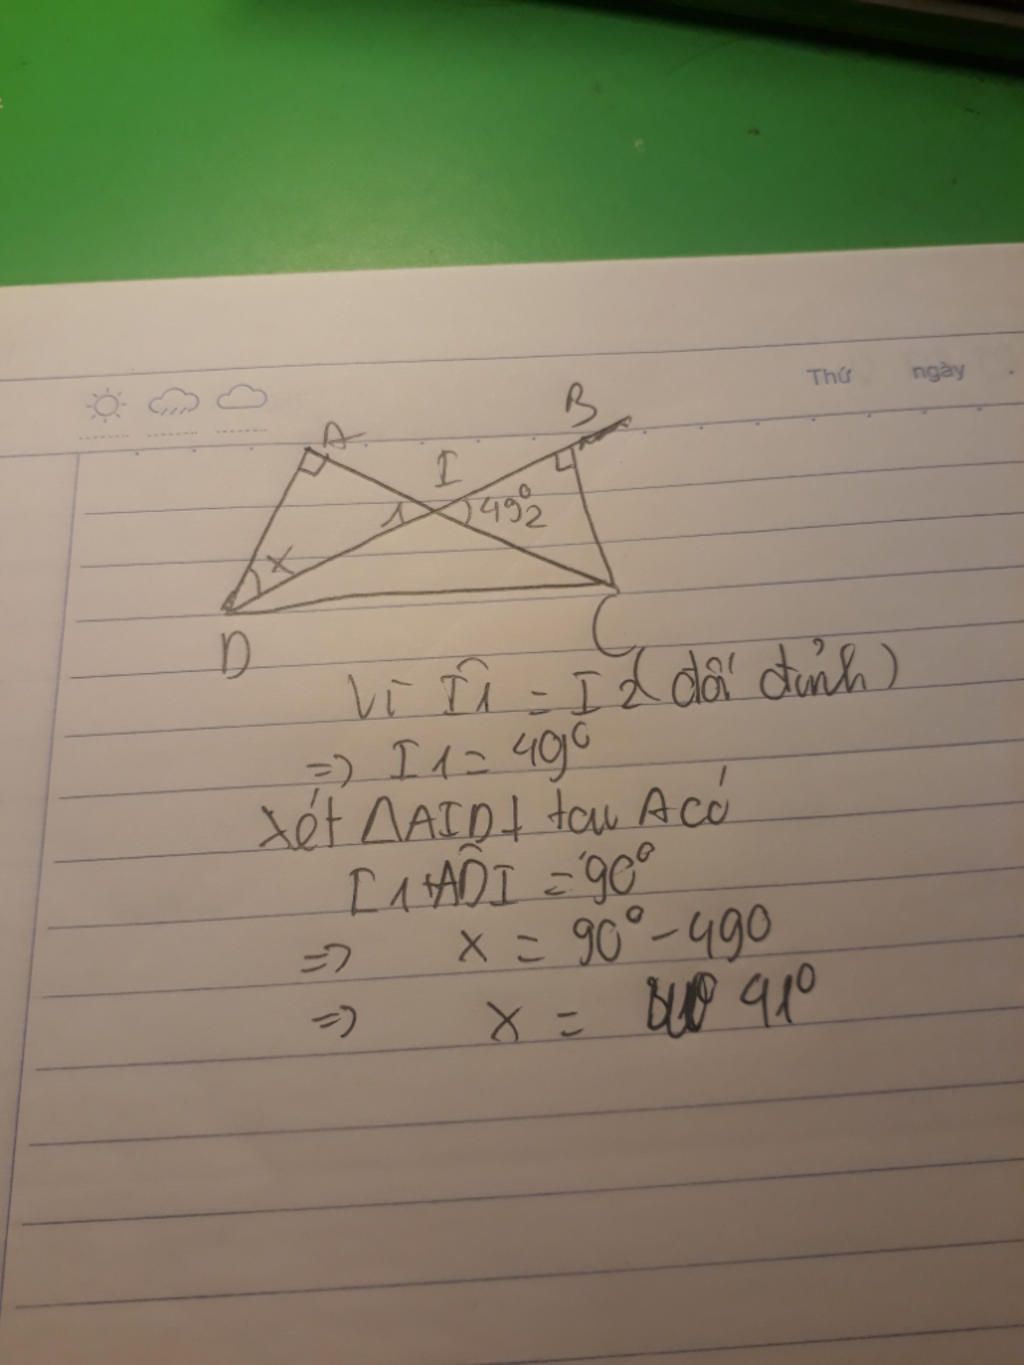 Thứ ngày
B
A
I
1 49° 2
x
D
C
Vì Î1 = I2 (đối đỉnh)
=> I1 = 49°
Xét ΔAID⊥ tại A có
I1+AD̂I = 90°
=> x = 90° - 490
=> x = 41°